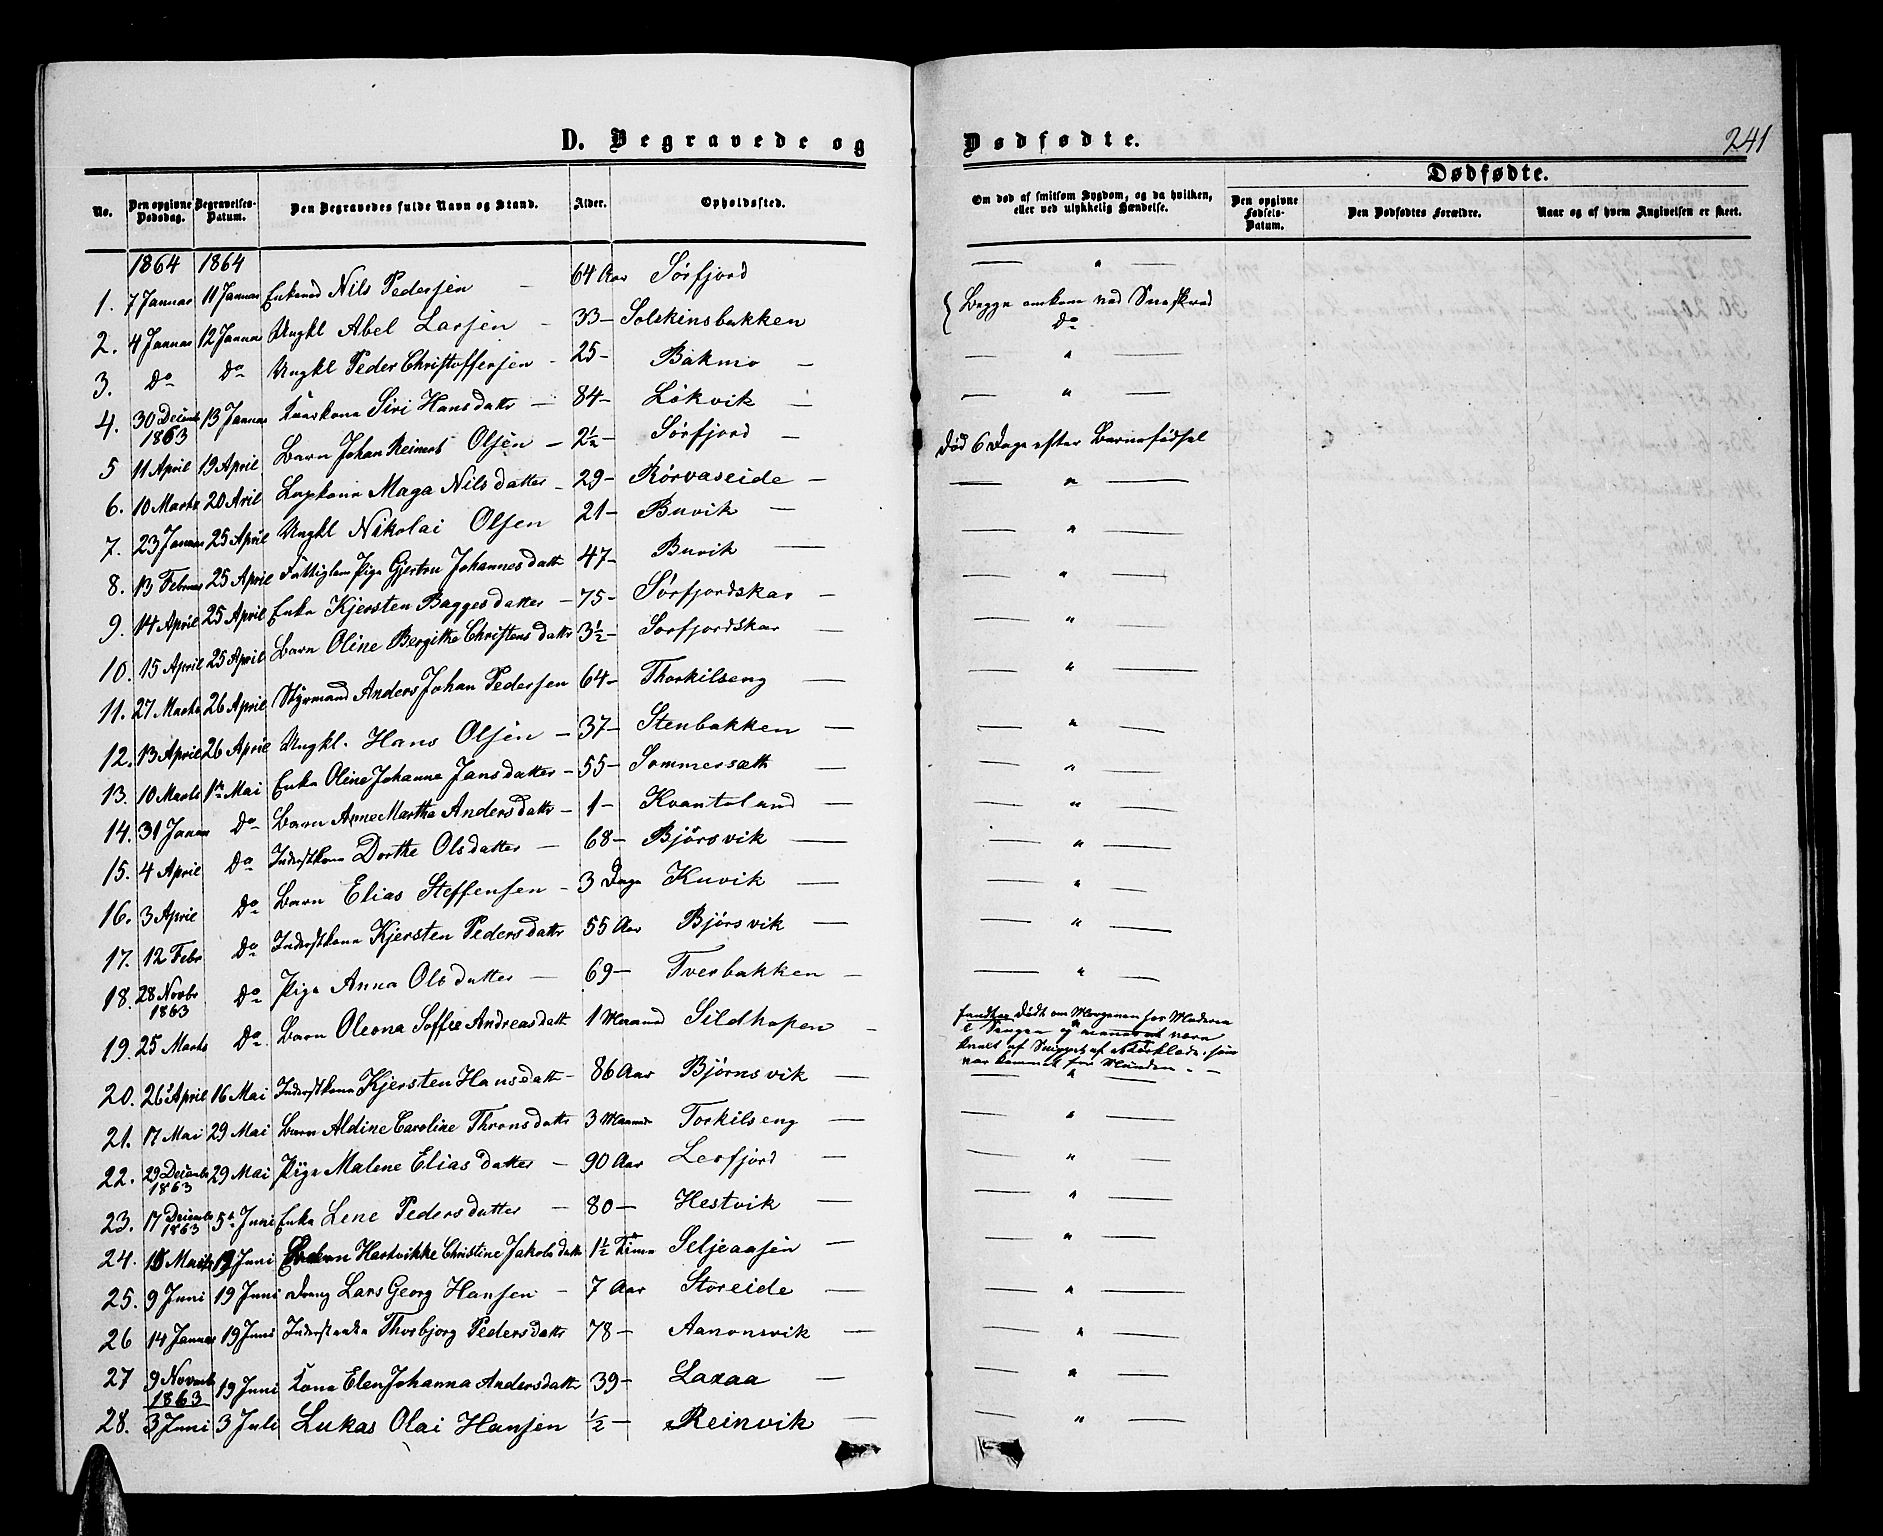 D. Begravede og Dødfødte. 241
No. Den opgivne Dødsdag. Begravelses-Datum. Den Begravedes fulde Navn og Stand. Alder. Opholdssted. Om død af smitsom Sygdom, og da hvilken, eller ved ulykkelig Hændelse. Dødfødte. Den opgivne Fødsels-Datum. Den Dødfødtes Forældre. Naar og af hvem Angivelsen er skeet.
1864 1864
1. 7 Januar 11 Januar Enkemd Nils Pedersen 64 Aar Sørfjord — " —
2. 4 Januar 12 Januar Ungkl Abel Larsen — 33 — Solskinsbakken { Begge omkom ved Sneskred
3. Do Do Ungkl Peder Christoffersen — 25 — Bakmo — Do
4. 30 Decemb 1863 13 Januar Kaarkone Siri Hansdatt — 84 — Lökvik — " —
5 11 April 19 April Barn Johan Reinert Olsen — 2½ — Sørfjord — " —
6. 10 Marts 20 Aril Lapkone Maga Nilsdatter — 29 — Rörvaseide — Död 6 Dage efter Barnefödsel
7. 23 Januar 25 April Ungkl Nikolai Olsen 21 — Buvik — " —
8. 13 Februar 25 April Fattiglem Pige Gjertru Johannesdatt 47 — Buvik — " —
9. 14 April 25 April Enke Kjersten Baggesdatter — 75 — Sørfjordskar — " —
10. 15 April 25 April Barn Oline Bergitte Christensdattr 3½ — Sorfjordskar — " —
11. 27 Marts 26 April Styrmand Anders Johan Pedersen 64 — Thorkilseng — " —
12. 13 April 26 April Ungkl. Hans Olsen — 37 — Stenbakken — " —
13. 10 Marts 1ste Mai Enke Oline Johanna Jansdatter — 55 — Sommersætt — " —
14. 31 Januar Do Barn Anne Martha Andersdatt — 1 — Kvantoland — " —
15. 4 April Do Inderstkone Dorthe Olsdatter — 68 — Björsvik — " —
16. 3 April Do Barn Elias Steffensen — 3 Dage Kuvik — " —
17. 12 Febr Do Inderstkone Kjersten Pedersdattr 55 Aar Björsvik — " —
18. 28 Novbr 1863 Do Pige Anna Olsdatter — 69 — Tverbakken — " —
19. 25 Marts Do Barn Oleona Soffie Andreasdatt 1 Maaned Sildhopen — fandtes Dödt om Morgenen hos Moderen
i Sengen og menes at være
qvalt af af et Törklæde, som
var kommet for Munden —
20. 26 April 16 Mai Inderstkone Kjersten Hansdatt — 86 Aar Bjørnsvik — " —
21. 17 Mai 29 Mai Barn Aldine Caroline Thronsdatt 3 Maaneder Torkilseng — " —
22. 29 Decembr 1863 29 Mai Pige Malene Eliasdatter — 90 Aar Lerfjord — " —
23. 17 Decembr 1863 5te Juni Enke Lene Pedersdatter — 80 — Hestvik — " —
24. 18 Marts 19 Juni Barn Hartvikke Christine Jakobsdatt 1½ Time Seljeaasen — " —
25. 9 Juni 19 Juni Dreng Lars Georg Hansen — 7 Aar Storeide — " —
26 14 Januar 19 Juni Inderstenke Thorbjorg Pedersdatt 78 — Aanonsvik — " —
27 9 Novemb 1863 19 Juni Kone Elen Johanna Andersdatt 39 — Laxaa — " —
28. 3 Juni 3 Juli Lukas Olai Hansen ½ — Reinvik — " —